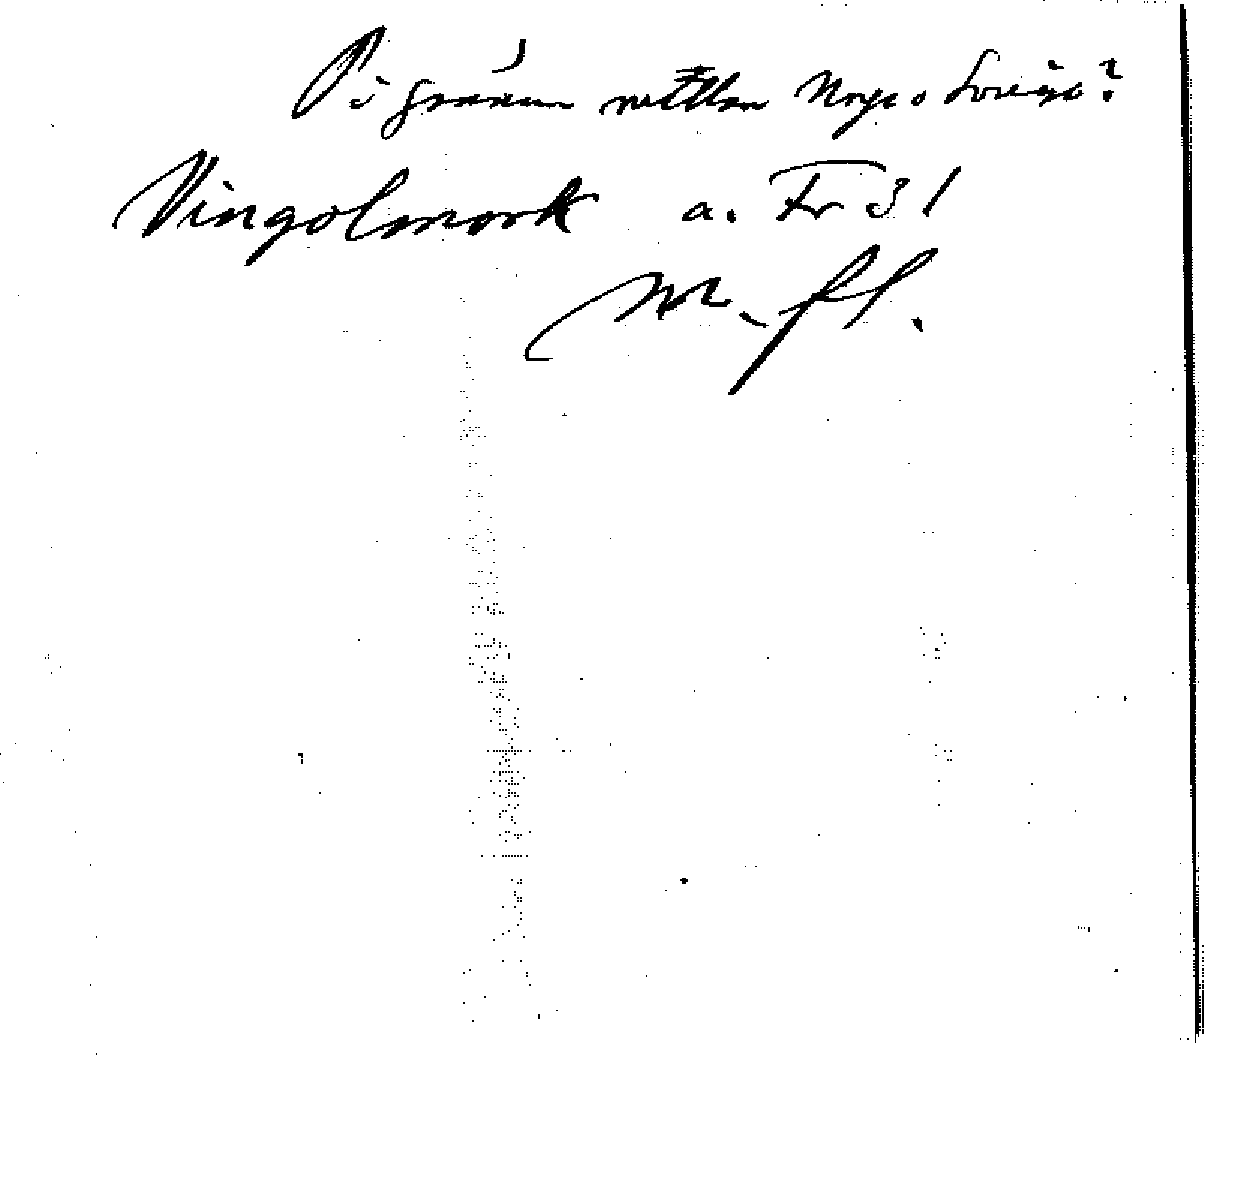 På gränsen mellan Norge o Sverige?
Vingolmork a. Fr 31
m. fl.